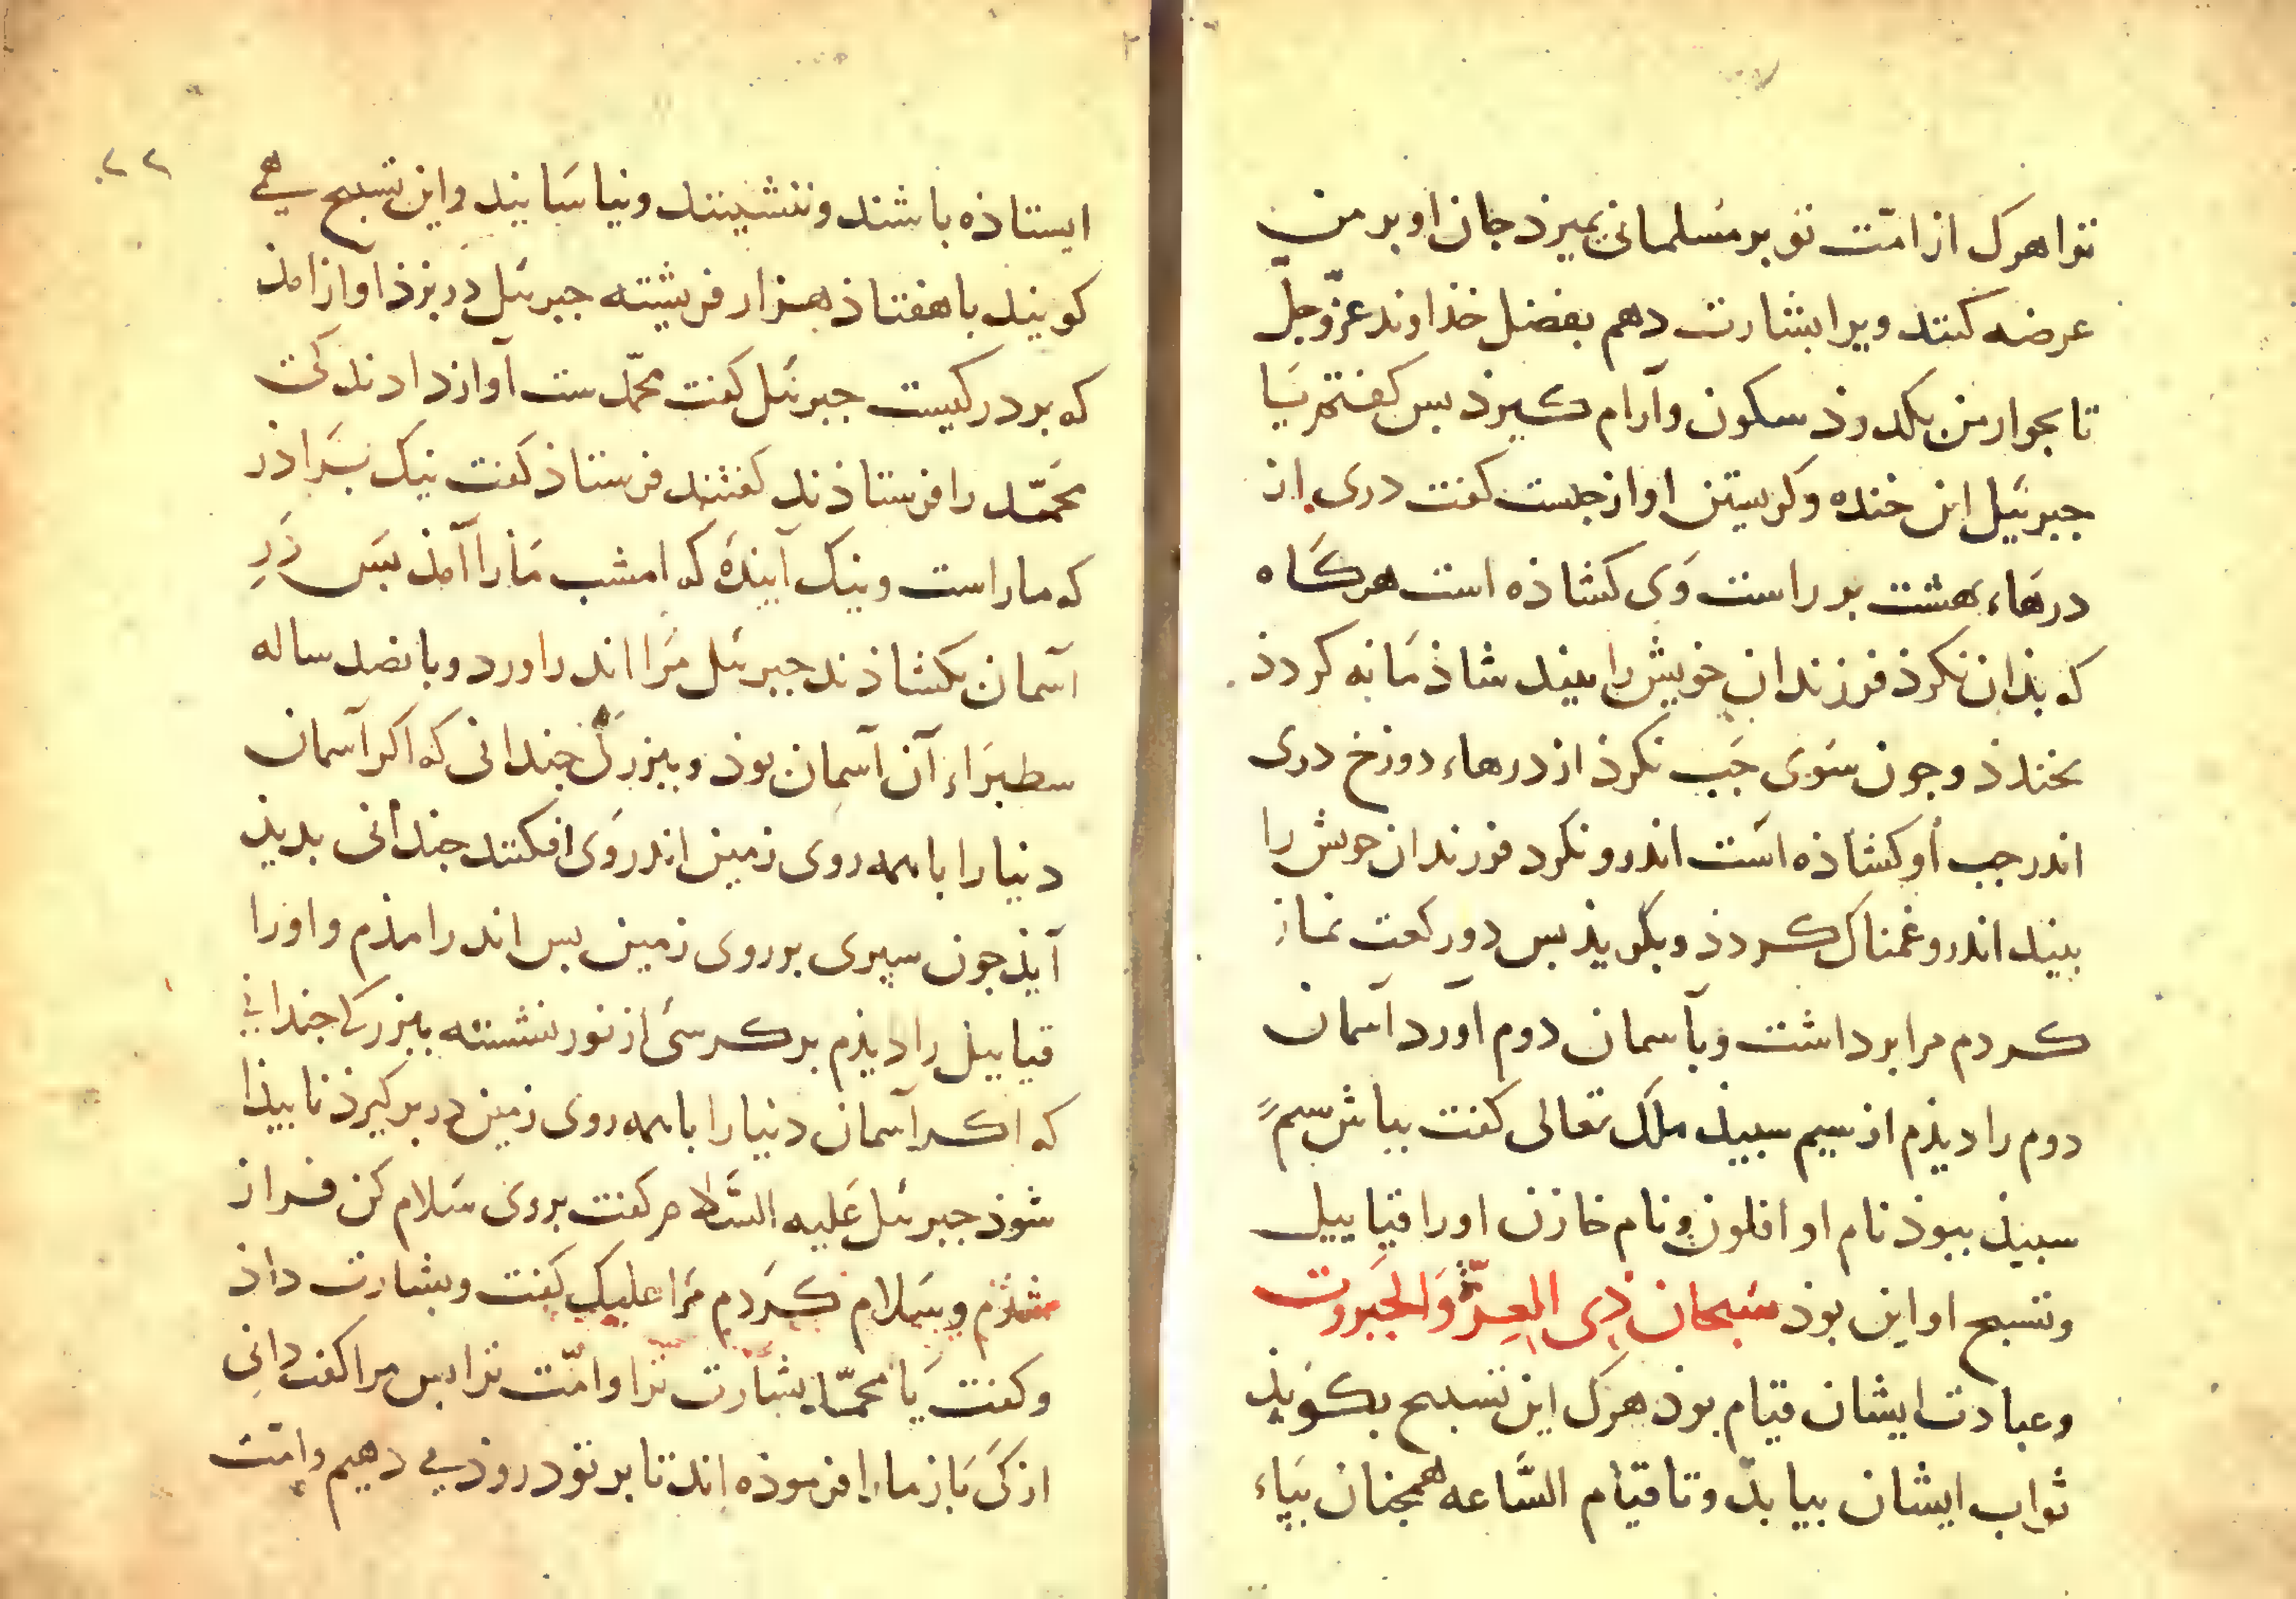 ترا هرک از امّت تو بر مسلمانی بمیرذ جان او بر من
عرضه کنند ویرا بشارت دهم بفضل خذاوند عزّ و جلّ
تا بجوار من بکدروذ سکون و آرام کیرذ بس کفتم یا
جبرئیل این خنده و کرستن او از جیست کفت دری از
درهاء بهشت بر راست وی کشاذه است هرکاه
که بذان نکرذ فرزندان خویش را بیند شاذمانه کردذ
بخندذ و جون سوی جب نکرذ از درهاء دوزخ دری
اندر جب او کشاذه است اندرو نکرد فرزندان خوش را
بیند اندر و غمناک کردذ و بکویذ بس دو رکعت نماز
کردم مرا برداشت و بآسمان دوم آورد آسمان
دوم را دیذم از سیم سبیذ ملک تعالی کفت بباش سیم
سبیذ ببوذ نام او افلون و نام خازن اورا قیاییل
و تسبیح او این بوذ سبحان ذی العزّة والجبروت
و عبادت ایشان قیام بوذ هرک این تسبیح بکویذ
ثواب ایشان بیابذ و تا قیام السّاعه همجنان بپاء
۲۲
ایستاذه باشند و ننشینند و نیاسایند و این تسبیح می
کویند با هفتاذ هزار فریشته جبرئیل در بزذ آواز امذ
که بر در کیست جبرئیل کفت محمّدست آواز دادند کی
محمّد را فرستاذند کفتند فرستاذ کفت نیک براذر
که ماراست و نیک آینده که امشب مارا آمذ بس در
آسمان بکشاذند جبرئیل مرا اندر اورد و بانصد ساله
سطبراء آن آسمان بوذ و ببزرکی جندانی که اکر آسمان
دنیا را باهمه روی زمین اندر وی افکنند جندانی بدیذ
آیذ جون سپری بر روی زمین بس اندر امذم و اورا
قیاییل را دیذم بر کرسی از نور نشسته ببزرکی جندانی
که اکر آسمان دنیا را باهمه روی زمین در بر کیرذ نابیذا
شوذ جبرئیل علیه السّلام کفت بروی سلام کن فراز
شذم و سلام کردم مرا علیک کفت و بشارت داذ
و کفت یا محمّد بشارت ترا و امّت ترا بس مرا کفت دانی
از کی باز مارا فرموذه اند تا بر تو دروذ می دهیم و امّت